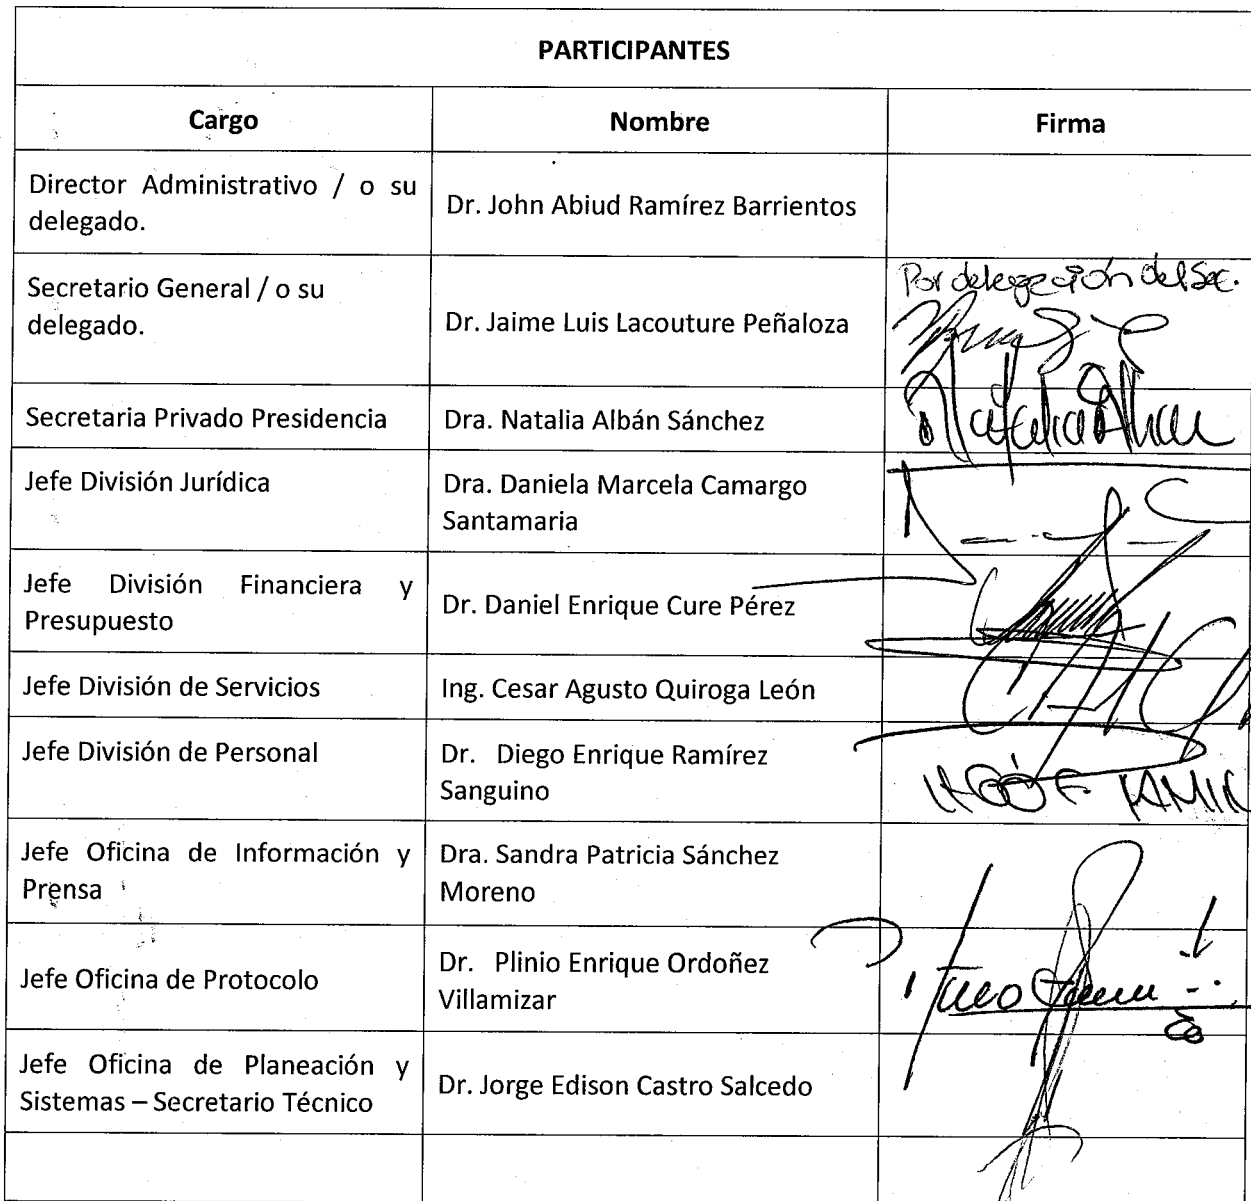 PARTICIPANTES
Cargo Nombre Firma
Director Administrativo / o su
delegado.
Dr. John Abiud Ramírez Barrientos
Secretario General / o su
delegado.
Dr. Jaime Luis Lacouture Peñaloza
Por delegación del Sec.
Secretaria Privado Presidencia
Dra. Natalia Albán Sánchez
Natalia Alban
Jefe División Jurídica
Dra. Daniela Marcela Camargo
Santamaria
Jefe División Financiera y
Presupuesto
Dr. Daniel Enrique Cure Pérez
Jefe División de Servicios
Ing. Cesar Agusto Quiroga León
Jefe División de Personal
Dr. Diego Enrique Ramírez
Sanguino
Jefe Oficina de Información y
Prensa
Dra. Sandra Patricia Sánchez
Moreno
Jefe Oficina de Protocolo
Dr. Plinio Enrique Ordoñez
Villamizar
Jefe Oficina de Planeación y
Sistemas – Secretario Técnico
Dr. Jorge Edison Castro Salcedo